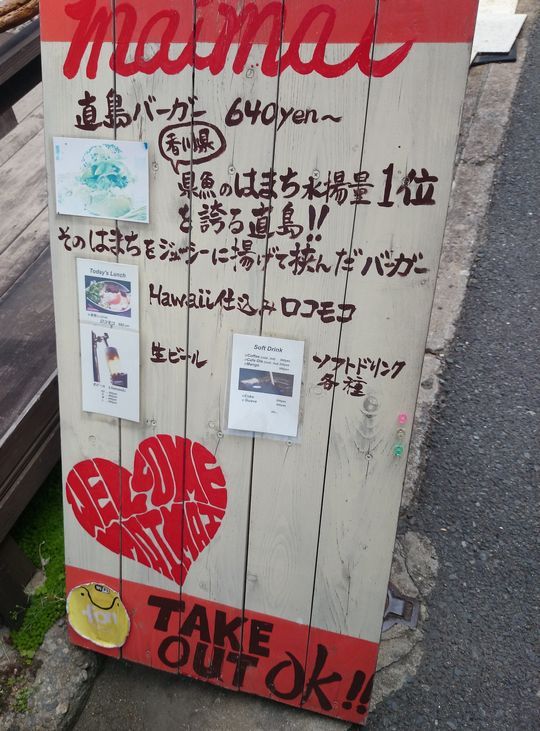 maimai
直島バーガー 640yen〜
香川県
県魚のはまち水揚量1位
を誇る直島!!
そのはまちをジューシーに揚げて挟んだバーガー
Today's Lunch
Hawaii仕込みロコモコ
生ビール
Soft Drink
ソフトドリンク
各種
WELCOME
MAIMAI
TAKE
OUT OK!!